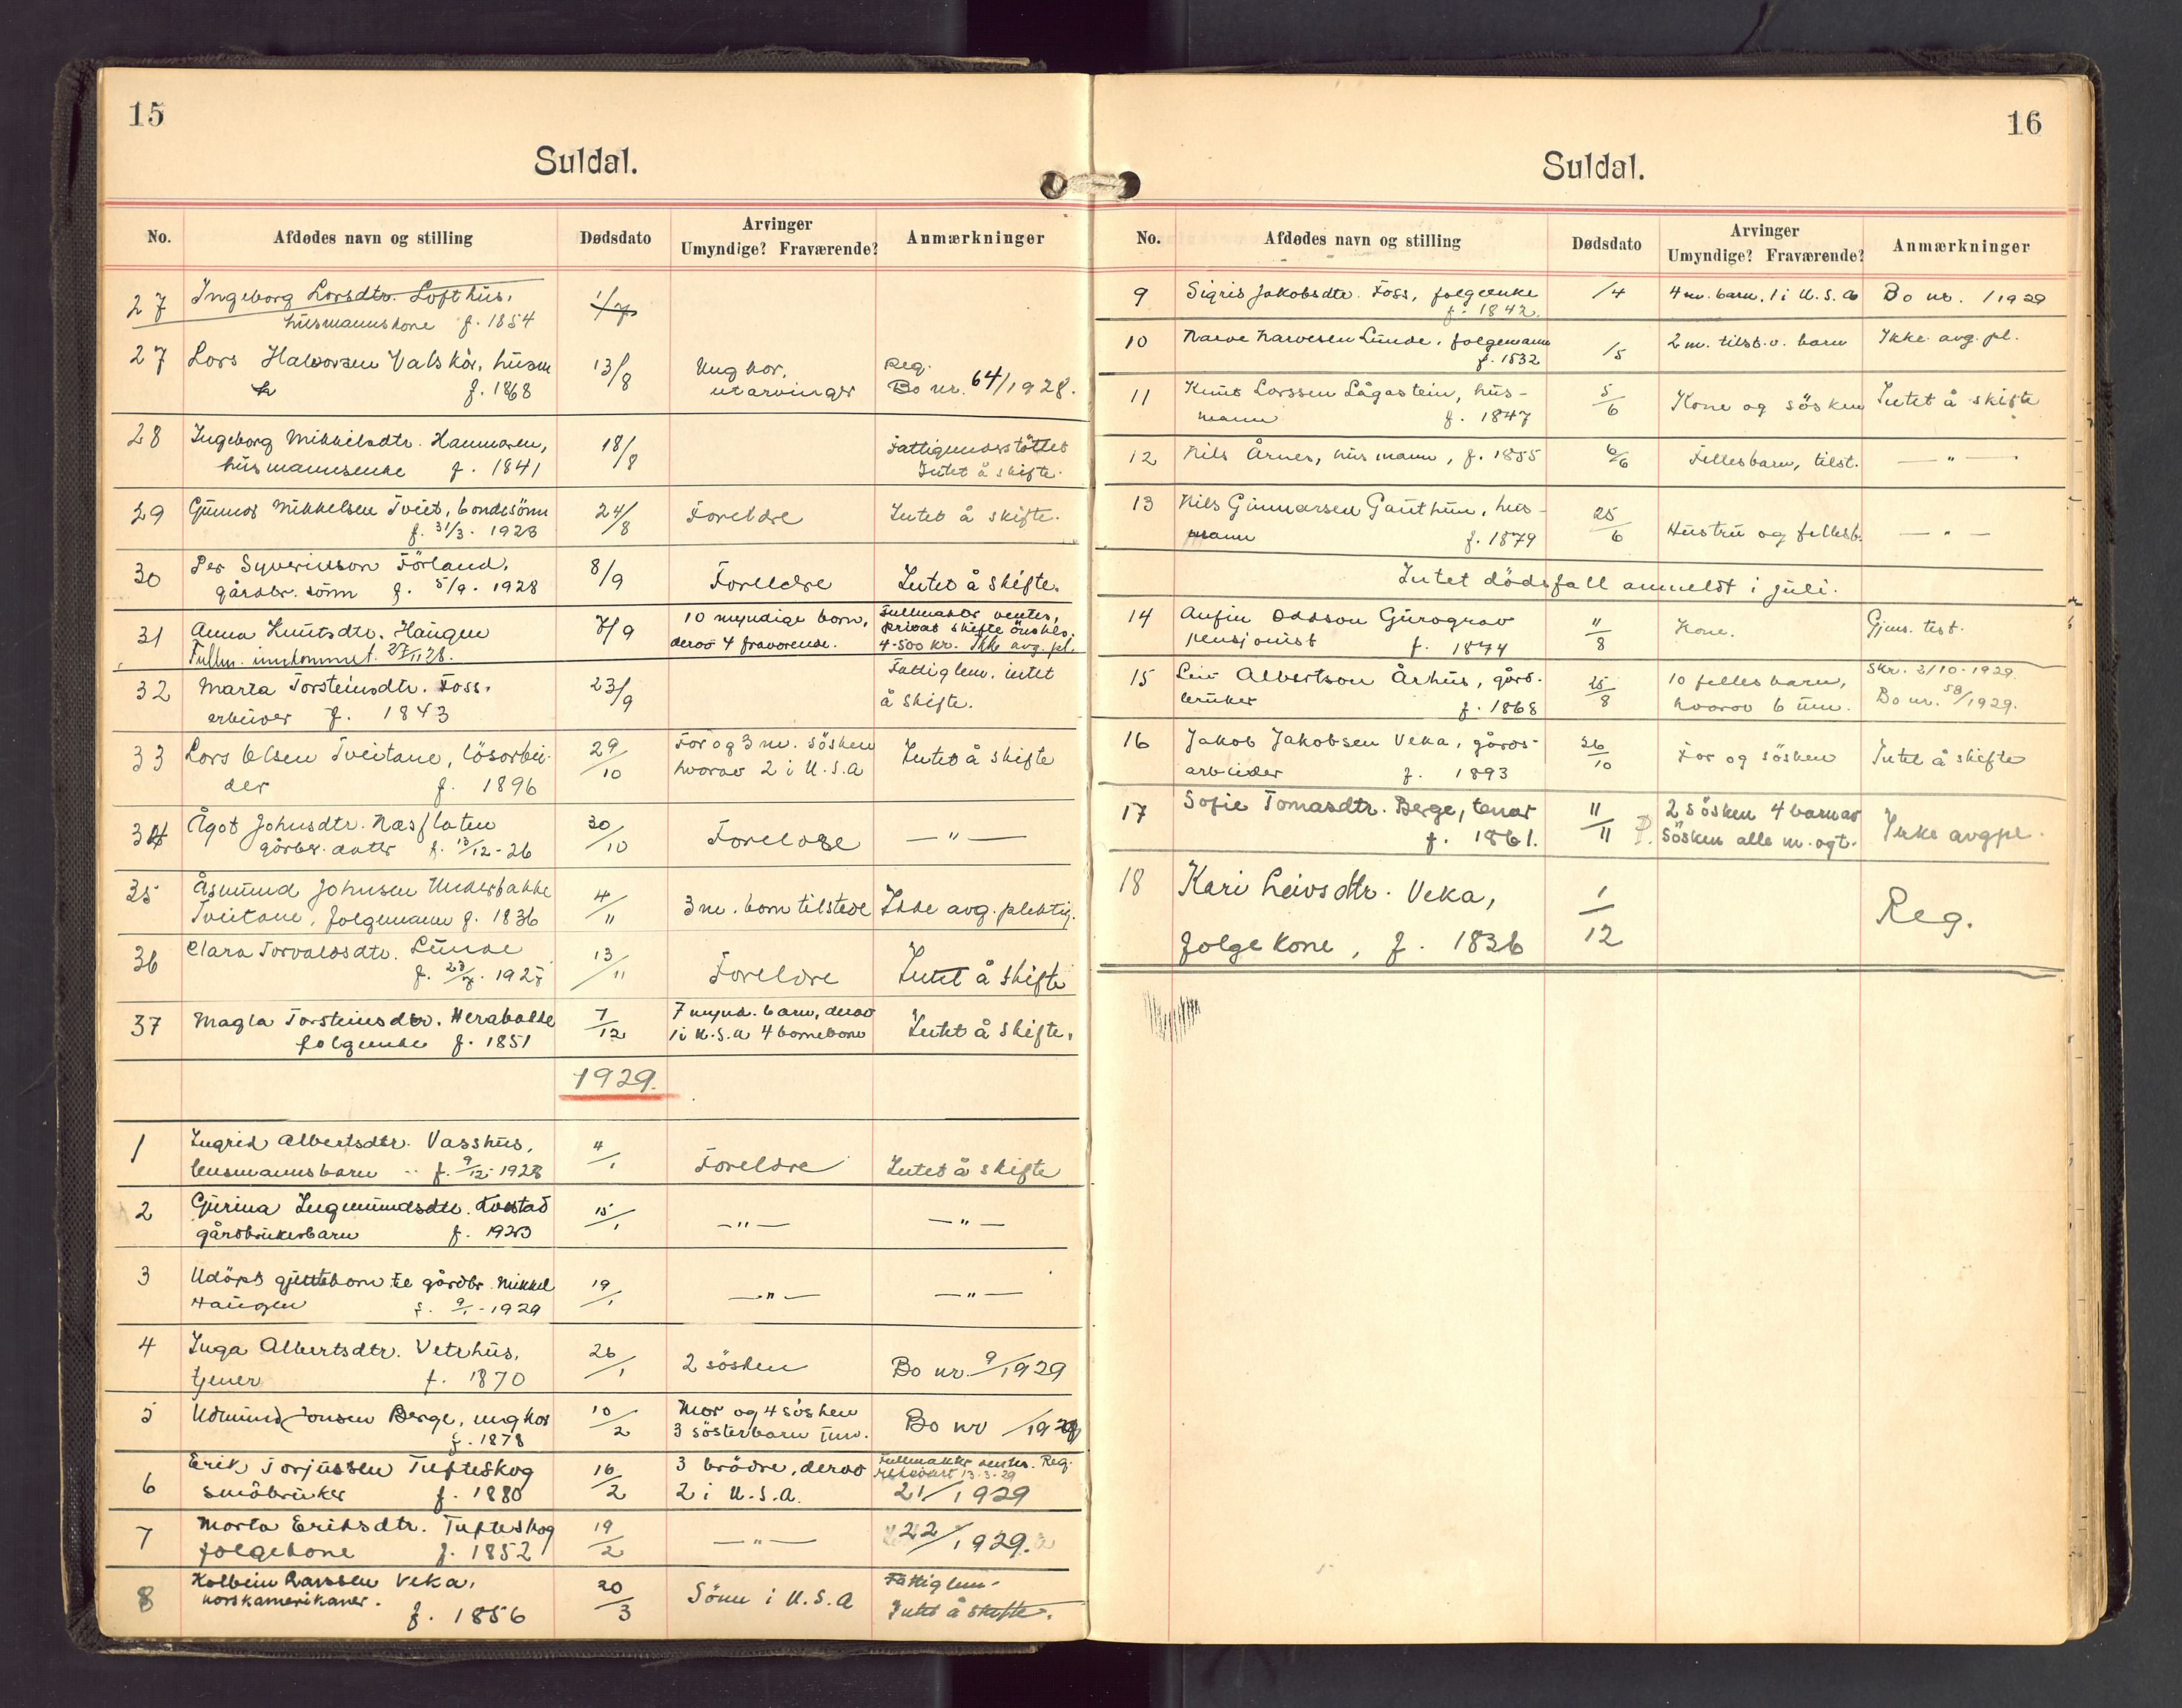 15
Suldal.
No. Afdødes navn og stilling Dødsdato Arvinger Umyndige? Fraværende? Anmærkninger
27 Ingeborg Larsdtr. Lofthus, 1/7
husmannskone f. 1854
27 Lars Halvorsen Valskår, husm 13/8 Ungkar, Reg.
f. 1868 utarvinger Bo nr. 64/1928.
28 Ingeborg Mikkelsdtr. Hammaren, 18/8 Fattigunderstöttet
husmannsenke f. 1841 Intet å skifte.
29 Gunnar Mikkelsen Tveit, bondesönn 24/8 Foreldre Intet å skifte.
f. 31/3. 1928
30 Per Syverinson Förland, 8/9 Foreldre Intet å skifte.
gårdbr. sönn f. 5/9. 1928
31 Anna Knutsdtr. Haugen 7/9 10 myndige barn, Fullmakter ventes,
derav 4 fraværende. privat skifte önskes.
Fullm. innkommet. 27/11 28. 4-500 kr. Ikke avg. pl.
32 Marta Torsteinsdtr. Foss. 23/9 Fattiglem. intet
arbeider f. 1843 å skifte.
33 Lars Olsen Tveitane, lösarbei- 29/10 Far og 3 m. sösken Intet å skifte
der f. 1896 hvorav 2 i U.S.A
34 Ågot Johnsdtr. Næsflaten 30/10 Foreldre — " —
gårbr. datter f. 13/12-26
35 Åsmund Johnsen Underbakke 4/11 3 m. barn tilstede Ikke avg. pliktig.
Tveitane, folgemann f. 1836
36 Clara Torvaldsdtr. Lunde 13/11 Foreldre Intet å skifte
37 Magla Torsteinsdtr. Herabakke 7/12 7 mynd. barn, derav Intet å skifte.
folgeenke f. 1851 1 i U.S.A 4 barnebarn
1929.
1 Ingrid Albertsdtr. Vasshus, 4/1 Foreldre Intet å skifte
husmannsbarn f. 9/12-1928
2 Gurina Ingemundsdtr. 15/1 — " — — " —
gårdbrukerbarn
3 Udöpt guttebarn te gårdbr. Mikkel 19/1 — " — — " —
Haugen f. 9/1-1929
4 Inga Albertsdtr. Vetrhus, 26/1 2 sösken Bo nr. 9/1929
tjener f. 1870
5 Udmund Jonsen Berge, ungkar 10/2 Mor og 4 sösken Bo nr /1929
f. 1878 3 sösterbarn um.
6 Erik Torjussen Tufteskog 16/2 3 brödre, derav Fullmakter ventes. Reg.
13.3.29
småbruker f. 1880 2 i U.S.A. 21/1929
7 Marta Eriksdtr. Tufteskog 19/2 — " — 22/1929.
folgekone f. 1852
8 Kolbein Larssen Veka, 20/3 Sönn i U.S.A Fattiglem.
norskamerikaner. f. 1856 Intet å skifte.
16
Suldal.
No. Afdødes navn og stilling Dødsdato Arvinger Umyndige? Fraværende? Anmærkninger
9 Sigrid Jakobsdtr. Foss, folgeenke /4 4 m. barn, 1 i U.S.A Bo nr. /1929
f. 1842.
10 Narve Narvesen Lunde, folgemann /5 2 m. tilst.v. barn Ikke avg. pl.
f. 1832
11 Knut Larssen Lågastein, hus- 5/6 Kone og sösken Intet å skifte
mann f. 1847
12 Nils Årnes, husmann, f. 1855 6/6 Fellesbarn, tilst. — " —
13 Nils Gunnarsen Gauthun, hus- 25/6 Hustru og fellesb. — " —
mann f. 1879
Intet dödsfall anmeldt i juli.
14 Anfin Oddson Gurograv 11/8 Kone. Gjens. test.
pensjonist f. 1844
15 Leiv Albertson Århus, gård- 25/8 10 fellesbarn, Skr. 2/10-1929.
bruker f. 1868 hvorav 6 um. Bo nr. 58/1929.
16 Jakob Jakobsen Veka, gårds- 26/10 Far og sösken Intet å skifte
arbeider f. 1893
17 Sofie Tomasdtr. Berge, tenar 11/11 2 sösken 4 barn av Ikke avg pl.
f. 1861. P. Sösken alle m. ogt.
18 Kari Leivsdtr. Veka, 1/12 Reg.
folgekone, f. 1836